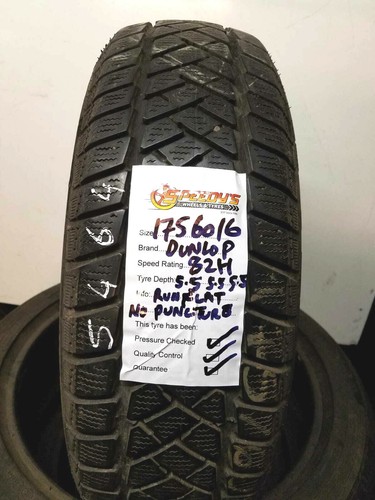 SPEEDY'S
WHEELS & TYRES
Size: 1756016
Brand: DUNLOP
Speed Rating: 82H
Tyre Depth: 5.5 5.5 5.5
Info: RUNFLAT
NO PUNCTURE
This tyre has been:
Pressure Checked ✓
Quality Control ✓
Guarantee ✓
5464